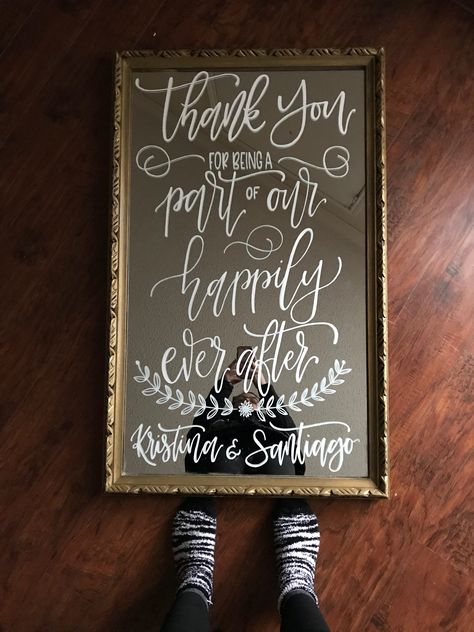 thank you
FOR BEING A
part OF our
happily
ever after
Kristina & Santiago